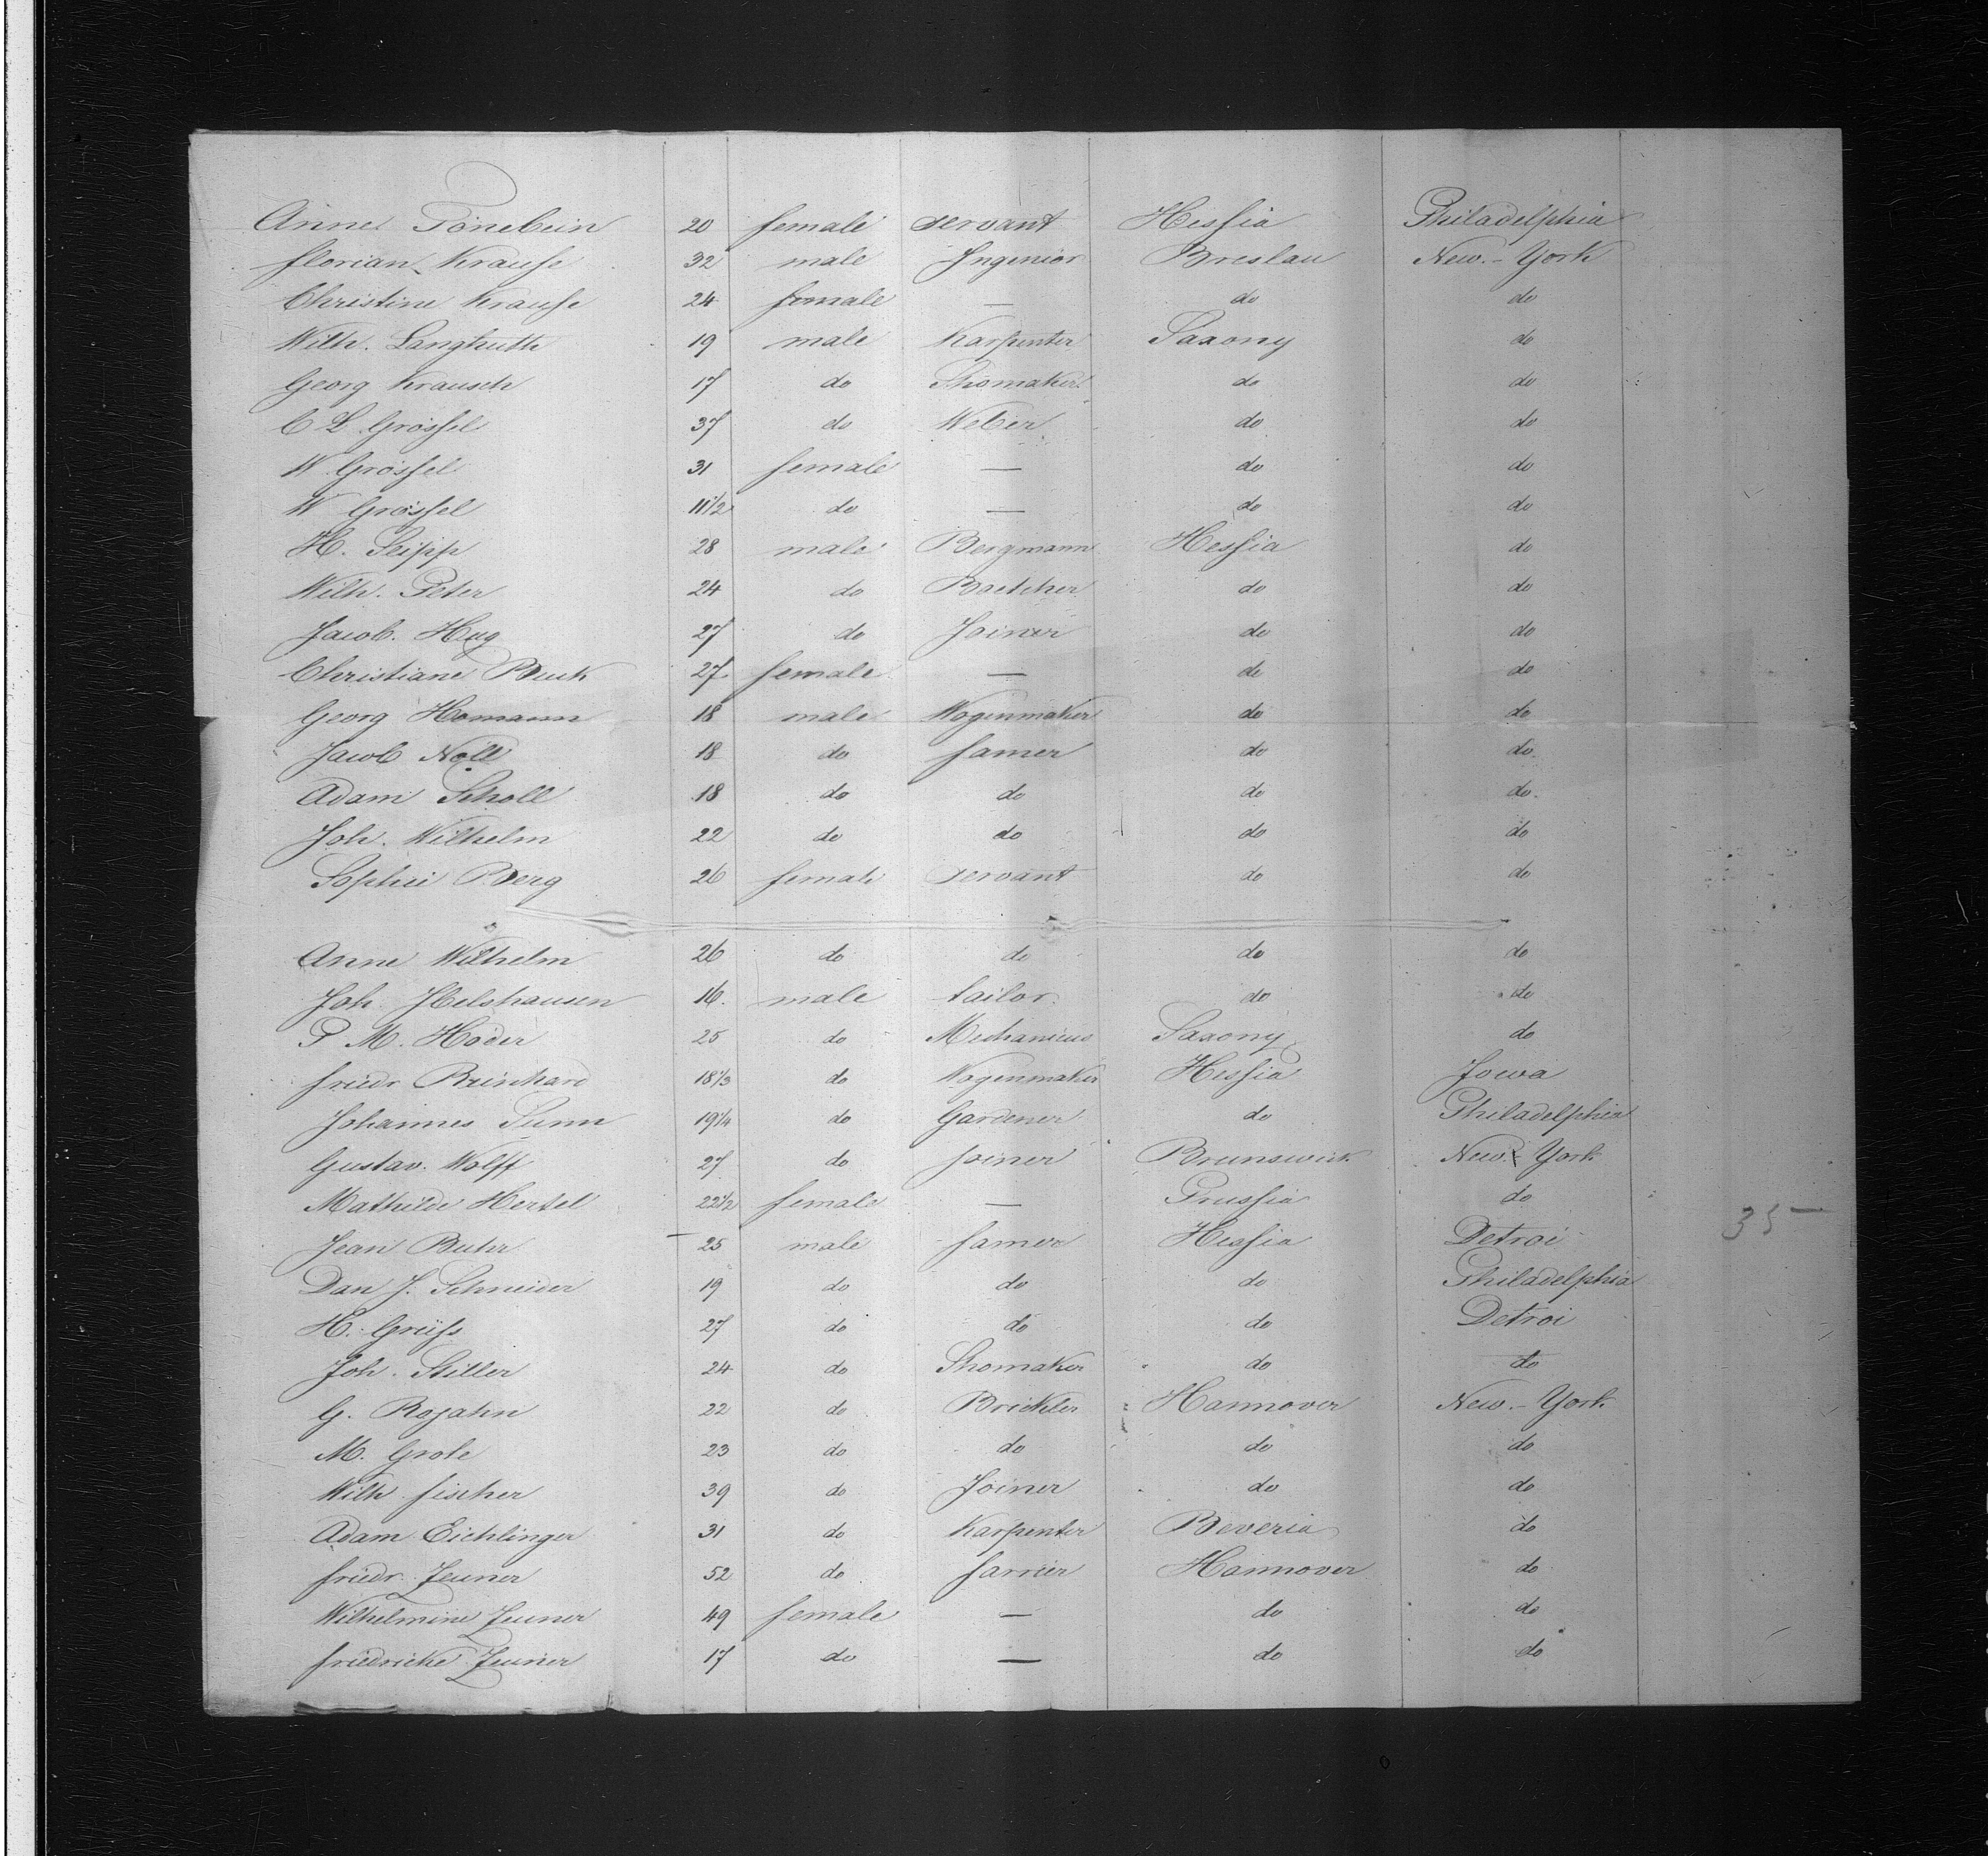 Anne Tönebein 20 female servant Hessia Philadelphia
Florian Krause 32 male Ingenior Breslau New-York
Christine Krause 24 female — do do
Wilh. Langhuth 19 male Karpenter Saxony do
Georg Krausch 17 do Shomaker do do
C L Grössel 37 do Weber do do
W Grössel 31 female — do do
W Grössel 11 1/2 do — do do
H. Seipp 28 male Bergmann Hessia do
Wilh. Peter 24 do Boetcher do do
Jacob. Hug 27 do Joiner do do
Christiane 27 female — do do
Georg Homann 18 male Wogenmaker do do
Jacob Noll 18 do famer do do
Adam Scholl 18 do do do do
Joh. Wilhelm 22 do do do do
Sophie Berg 26 female servant do do
Anne Wilhelm 26 do do do do
Joh. 16 male tailor do do
P M. Höder 25 do Mechanicus Saxony do
Friedr Reinhard 18 1/3 do Wogenmaker Hessia Jowa
Johannes Sunn 19 1/4 do Gardener do Philadelphia
Gustav. Wolff 27 do Joiner Brunswick New-York
Mathilde Hertel 22 1/2 female — Prussia do
Jean Buhr 25 male famer Hessia Detroi
35
Dan J. Schneider 19 do do do Philadelphia
H. Grüss 27 do do do Detroi
Joh. Stiller 24 do Shomaker do do
G. Rojahn 22 do Brickler Hannover New-York
M. Grote 23 do do do do
Wilh fischer 39 do Joiner do do
Adam Eichlinger 31 do Karpenter Beveria do
friedr. Zeuner 52 do farrier Hannover do
Wilhelmine Zeuner 49 female — do do
friedricke Zeuner 17 do — do do